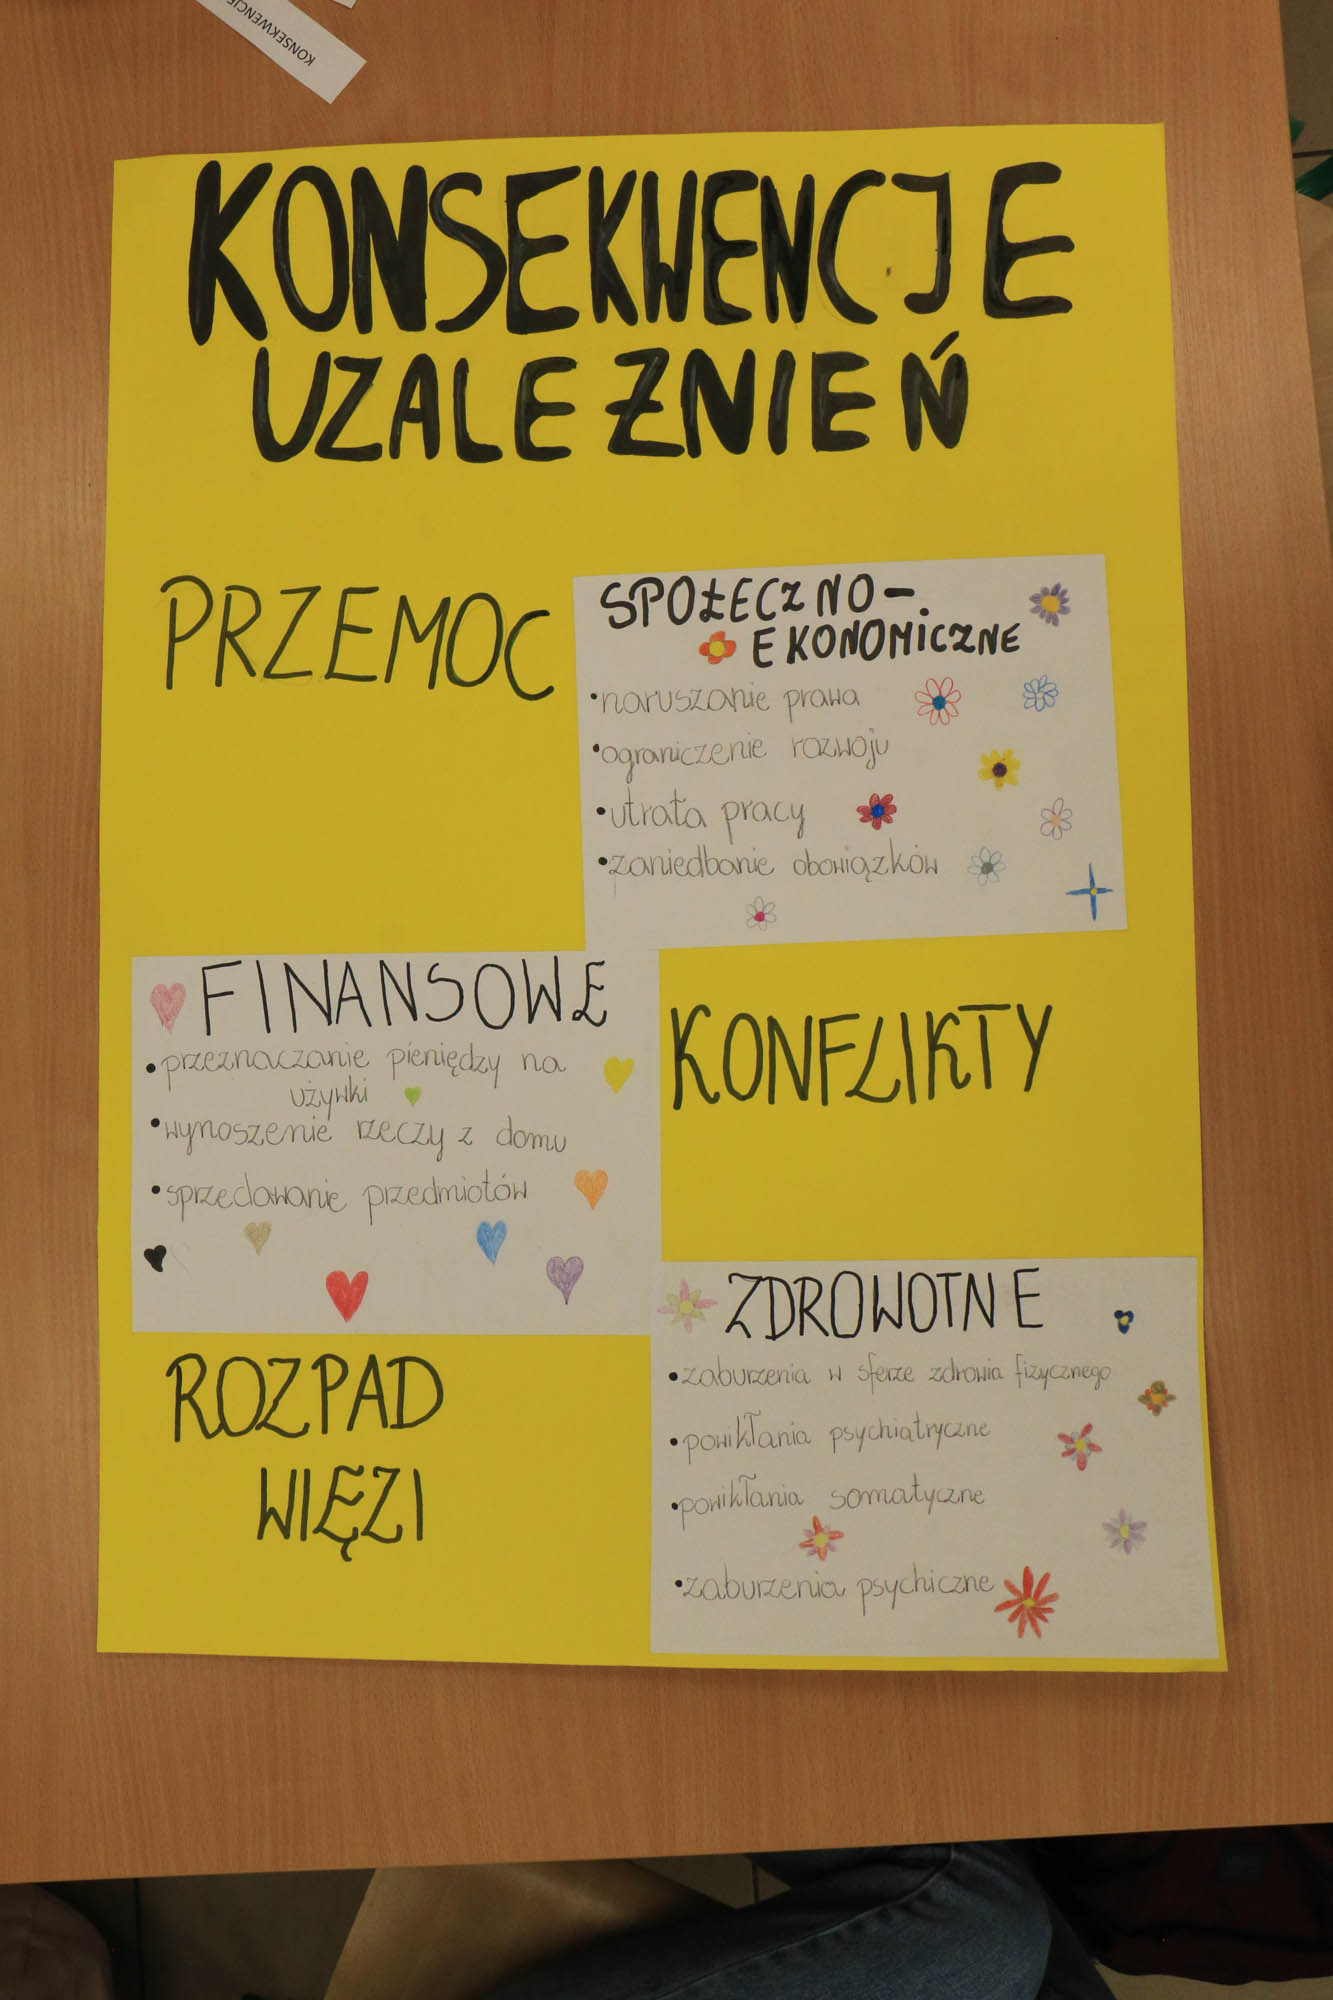 KONSEKWENCJE
KONSEKWENCJE
UZALEŻNIEŃ
PRZEMOC
SPOŁECZNO-
EKONOMICZNE
•naruszanie prawa
•ograniczenie rozwoju
•utrata pracy
•zaniedbanie obowiązków
FINANSOWE
•przeznaczanie pieniędzy na
używki
•wynoszenie rzeczy z domu
•sprzedawanie przedmiotów
KONFLIKTY
ZDROWOTNE
•zaburzenia w sferze zdrowia fizycznego
•powikłania psychiatryczne
•powikłania somatyczne
•zaburzenia psychiczne
ROZPAD
WIĘZI